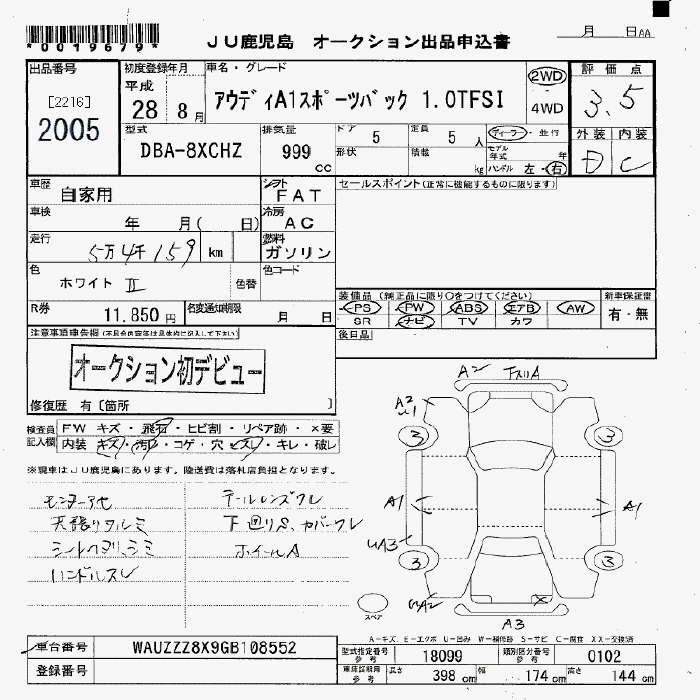 *0019679*
JU鹿児島 オークション出品申込書
月 日 AA
出品番号
[2216]
2005
初度登録年月
平成
28 8月
車名・グレード
アウディA1スポーツバック 1.0TFSI
2WD
4WD
評価点
3.5
型式
DBA-8XCHZ
排気量
999
cc
ドア 5
定員 5人
形状
積載 kg
ディーラー・並行
モデル年式 年
ハンドル 左・右
外装 内装
D C
車歴
自家用
シフト
FAT
セールスポイント(正常に機能するものに限ります)
車検
年 月( 日)
冷房
AC
走行
5万4千159 km
燃料
ガソリン
色
ホワイト II
色替
色コード
R券
11,850円
名変通知期限
月 日
装備品(純正品に限り○をつけてください)
PS PW ABS エアB AW
SR ナビ TV カワ
新車保証書
有・無
後日品
注意事項申告欄(不具合内容等は具体的に記入して下さい)
オークション初デビュー
修復歴 有〔箇所 〕
検査員記入欄
FW キズ・飛石・ヒビ割・リペア跡・×要
内装 キズ・汚れ・コゲ・穴・ビス穴・キレ・破レ
※現車はJU鹿児島にあります。陸送費は落札店負担となります。
テールレンズワレ
天張りワルミ
下廻りS、カバーワレ
シートヘタリ、シミ
ホイールA
ハンドルスレ
A2 下スリA
A2
U1
3 3
A1 A1
UA3
3 3
UA2
A3
スペア
A-キズ、E-エクボ U-凹み W-補修跡 S-サビ C-腐食 XX-交換済
車台番号
WAUZZZ8X9GB108552
登録番号
型式指定番号 参考
18099
類別区分番号 参考
0102
車検証諸元 参考
長さ 398 cm
幅 174 cm
高さ 144 cm